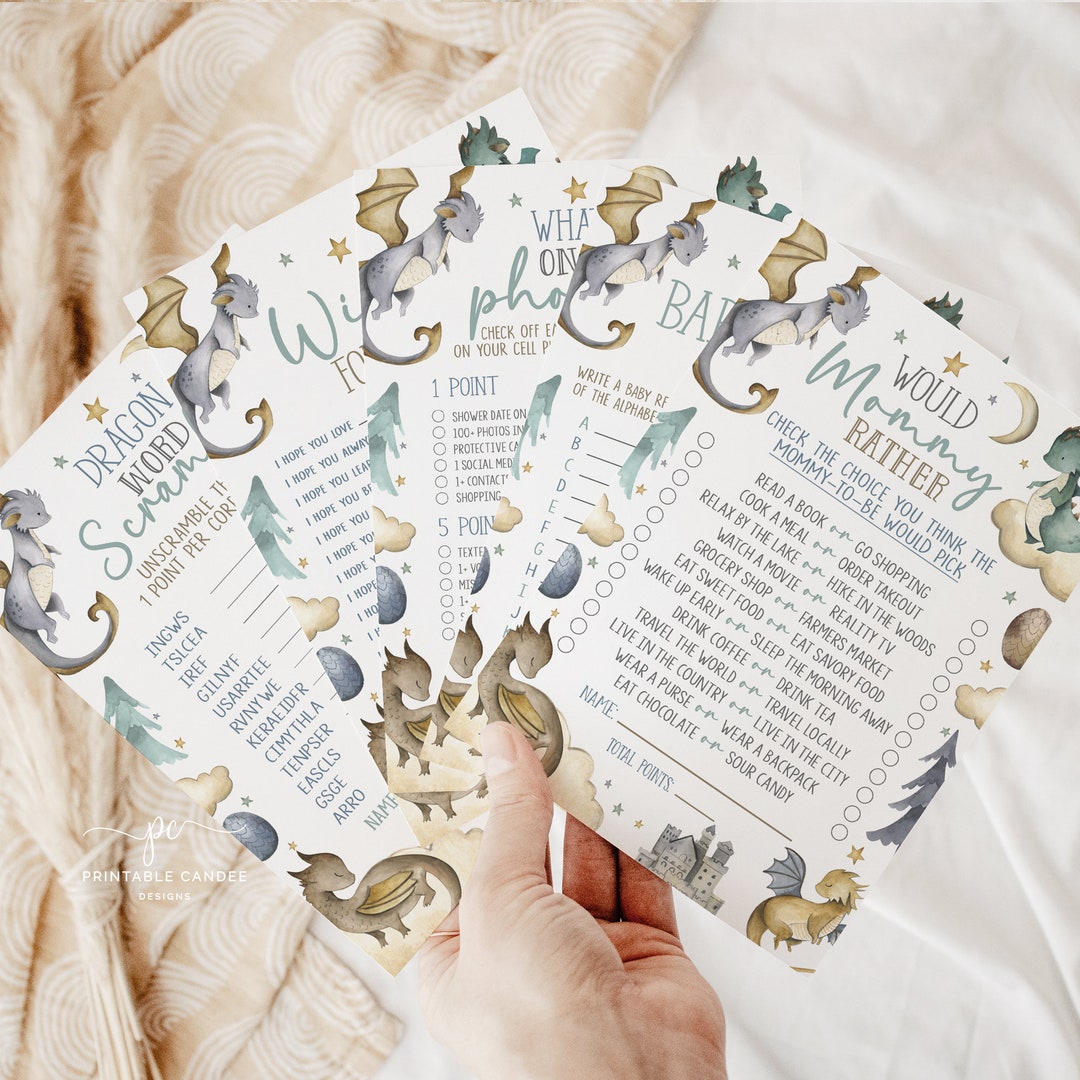 DRAGON
WORD
Scram
UNSCRAMBLE TH
1 POINT PER CORR
INGWS
ISLCEA
IREF
GILNYF
USARRTEE
PVNYWE
KERAEIDER
CIMYTHLA
TENPSER
EASCLS
GSGE
ARRO
NAME
Wi
FO
I HOPE YOU LOVE
I HOPE YOU ALWAY
I HOPE YOU LEAR
I HOPE YOU BE
I HOPE YOU
I HOPE YOU
I HOPE YOU
I HOPE
I HOPE
I HOPE
I
WHAT
ON
pho
CHECK OFF EA
ON YOUR CELL P
1 POINT
SHOWER DATE ON
100+ PHOTOS IN
PROTECTIVE CA
1 SOCIAL MED
1+ CONTACT
SHOPPING
5 POIN
TEXTE
1+ VO
MIS
1+
BAB
WRITE A BABY RE
OF THE ALPHABE
A
B
C
D
E
F
G
H
I
J
WOULD
Mommy
RATHER
CHECK THE CHOICE YOU THINK THE
MOMMY-TO-BE WOULD PICK
READ A BOOK or GO SHOPPING
COOK A MEAL or ORDER TAKEOUT
RELAX BY THE LAKE or HIKE IN THE WOODS
WATCH A MOVIE or REALITY TV
GROCERY SHOP or FARMERS MARKET
EAT SWEET FOOD or EAT SAVORY FOOD
WAKE UP EARLY or SLEEP THE MORNING AWAY
DRINK COFFEE or DRINK TEA
TRAVEL THE WORLD or TRAVEL LOCALLY
LIVE IN THE COUNTRY or LIVE IN THE CITY
WEAR A PURSE or WEAR A BACKPACK
EAT CHOCOLATE or SOUR CANDY
NAME:
TOTAL POINTS:
pc
PRINTABLE CANDEE
DESIGNS